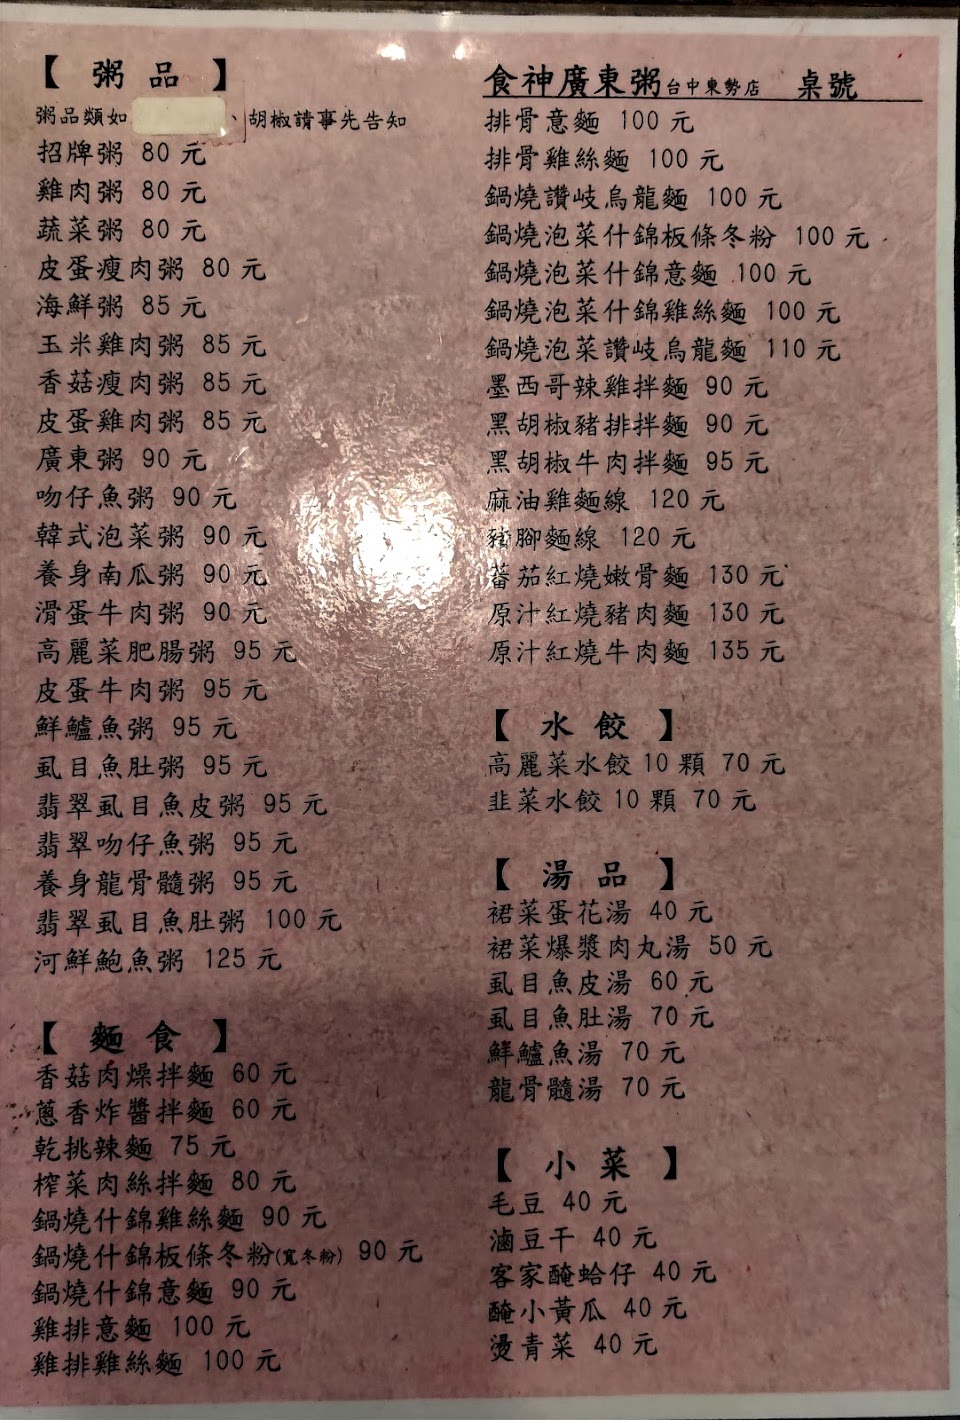 【 粥 品 】
粥品類如 、胡椒請事先告知
招牌粥 80 元
雞肉粥 80 元
蔬菜粥 80 元
皮蛋瘦肉粥 80 元
海鮮粥 85 元
玉米雞肉粥 85 元
香菇瘦肉粥 85 元
皮蛋雞肉粥 85 元
廣東粥 90 元
吻仔魚粥 90 元
韓式泡菜粥 90 元
養身南瓜粥 90 元
滑蛋牛肉粥 90 元
高麗菜肥腸粥 95 元
皮蛋牛肉粥 95 元
鮮鱸魚粥 95 元
虱目魚肚粥 95 元
翡翠虱目魚皮粥 95 元
翡翠吻仔魚粥 95 元
養身龍骨髓粥 95 元
翡翠虱目魚肚粥 100 元
河鮮鮑魚粥 125 元
【 麵 食 】
香菇肉燥拌麵 60 元
蔥香炸醬拌麵 60 元
乾挑辣麵 75 元
榨菜肉絲拌麵 80 元
鍋燒什錦雞絲麵 90 元
鍋燒什錦板條冬粉(寬冬粉) 90 元
鍋燒什錦意麵 90 元
雞排意麵 100 元
雞排雞絲麵 100 元
食神廣東粥台中東勢店 桌號
排骨意麵 100 元
排骨雞絲麵 100 元
鍋燒讚岐烏龍麵 100 元
鍋燒泡菜什錦板條冬粉 100 元
鍋燒泡菜什錦意麵 100 元
鍋燒泡菜什錦雞絲麵 100 元
鍋燒泡菜讚岐烏龍麵 110 元
墨西哥辣雞拌麵 90 元
黑胡椒豬排拌麵 90 元
黑胡椒牛肉拌麵 95 元
麻油雞麵線 120 元
豬腳麵線 120 元
蕃茄紅燒嫩骨麵 130 元
原汁紅燒豬肉麵 130 元
原汁紅燒牛肉麵 135 元
【 水 餃 】
高麗菜水餃 10 顆 70 元
韭菜水餃 10 顆 70 元
【 湯 品 】
裙菜蛋花湯 40 元
裙菜爆漿肉丸湯 50 元
虱目魚皮湯 60 元
虱目魚肚湯 70 元
鮮鱸魚湯 70 元
龍骨髓湯 70 元
【 小 菜 】
毛豆 40 元
滷豆干 40 元
客家醃蛤仔 40 元
醃小黃瓜 40 元
燙青菜 40 元